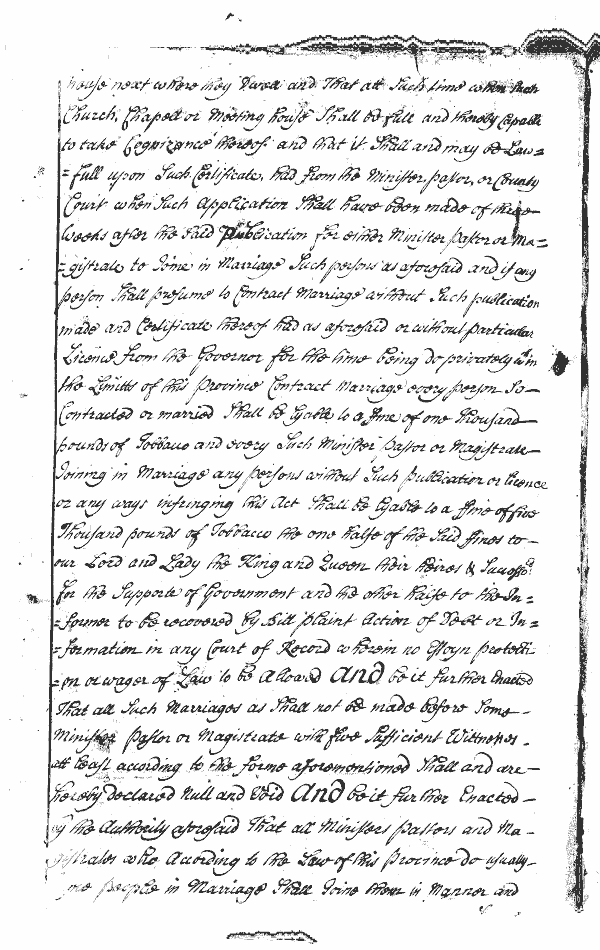 house next where they Dwell and That att Such time when Such
Church, Chapell or Meeting house Shall be full and thereby Capable
to take Cognizance thereof and that it Shall and may be Law=
=full upon Such Certificate, had from the Minister, pastor, or County
Court when Such Application Shall have been made of three
Weeks after the said Publication for either Minister Pastor or Ma=
=gistrate to Joine in Marriage Such persons as aforesaid and if any
person Shall presume to Contract Marriage without Such publication
made and Certificate thereof had as aforesaid or without particular
Licence from the Governor for the time being do privately wthin
the Limitts of this Province Contract Marriage every person So
Contracted or married Shall be lyable to a ffine of one thousand
pounds of Tobbaco and every Such Minister Pastor or Magistrate
Joining in Marriage any persons without Such Publication or licence
or any ways infringing this Act Shall be lyable to a ffine of five
Thousand pounds of Tobbacco the one halfe of the Said ffines to
our Lord and Lady the King and Queen their heires & Successrs
for the Supporte of Government and the other halfe to the In=
=former to be recovered by Bill plaint Action of Debt or In=
=formation in any Court of Record wherein no Essoyn protecti
=on or wager of Law to be Allowed And be it further Enacted
That all Such Marriages as Shall not be made before Some
Minister Pastor or Magistrate with five Sufficient Wittneses
att least according to the forme aforementioned Shall and are
hereby declared Null and Void And be it further Enacted
by the Authority aforesaid That all Ministers pastors and Ma
gistrates who According to the Law of this Province do usually
people in Marriage Shall Joine them in Manner and